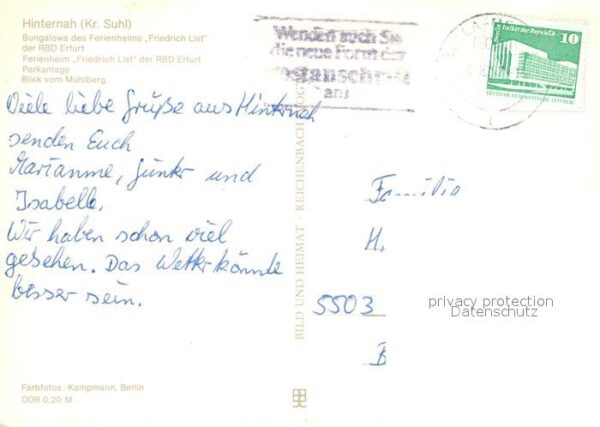 Hinternah (Kr. Suhl)
Bungalows des Ferienheims „Friedrich List"
der RBD Erfurt
Ferienheim „Friedrich List" der RBD Erfurt
Parkanlage
Blick vom Mühlberg
Wenden auch Sie
die neue Form der
Postanschrift
an!
Berlin, Palast der Republik
10
DEUTSCHE DEMOKRATISCHE REPUBLIK
Viele liebe Grüße aus Hinternah
senden Euch
Marianne, und
Isabelle.
Wir haben schon viel
gesehen. Das Wetter könnte
besser sein.
BILD UND HEIMAT · REICHENBACH
Familie
H.
5503
B
privacy protection
Datenschutz
Farbfotos: Kampmann, Berlin
DDR 0,20 M